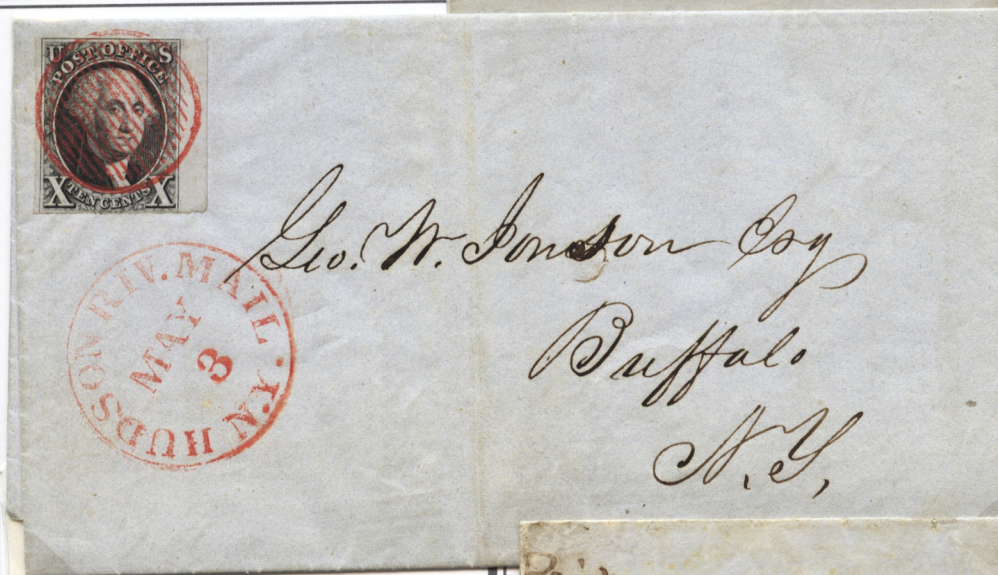 U S
POST OFFICE
X TEN CENTS X
HUDSON RIV. MAIL. N.Y.
MAY
3
Geo. W. Jonson Esq
Buffalo
N.Y.